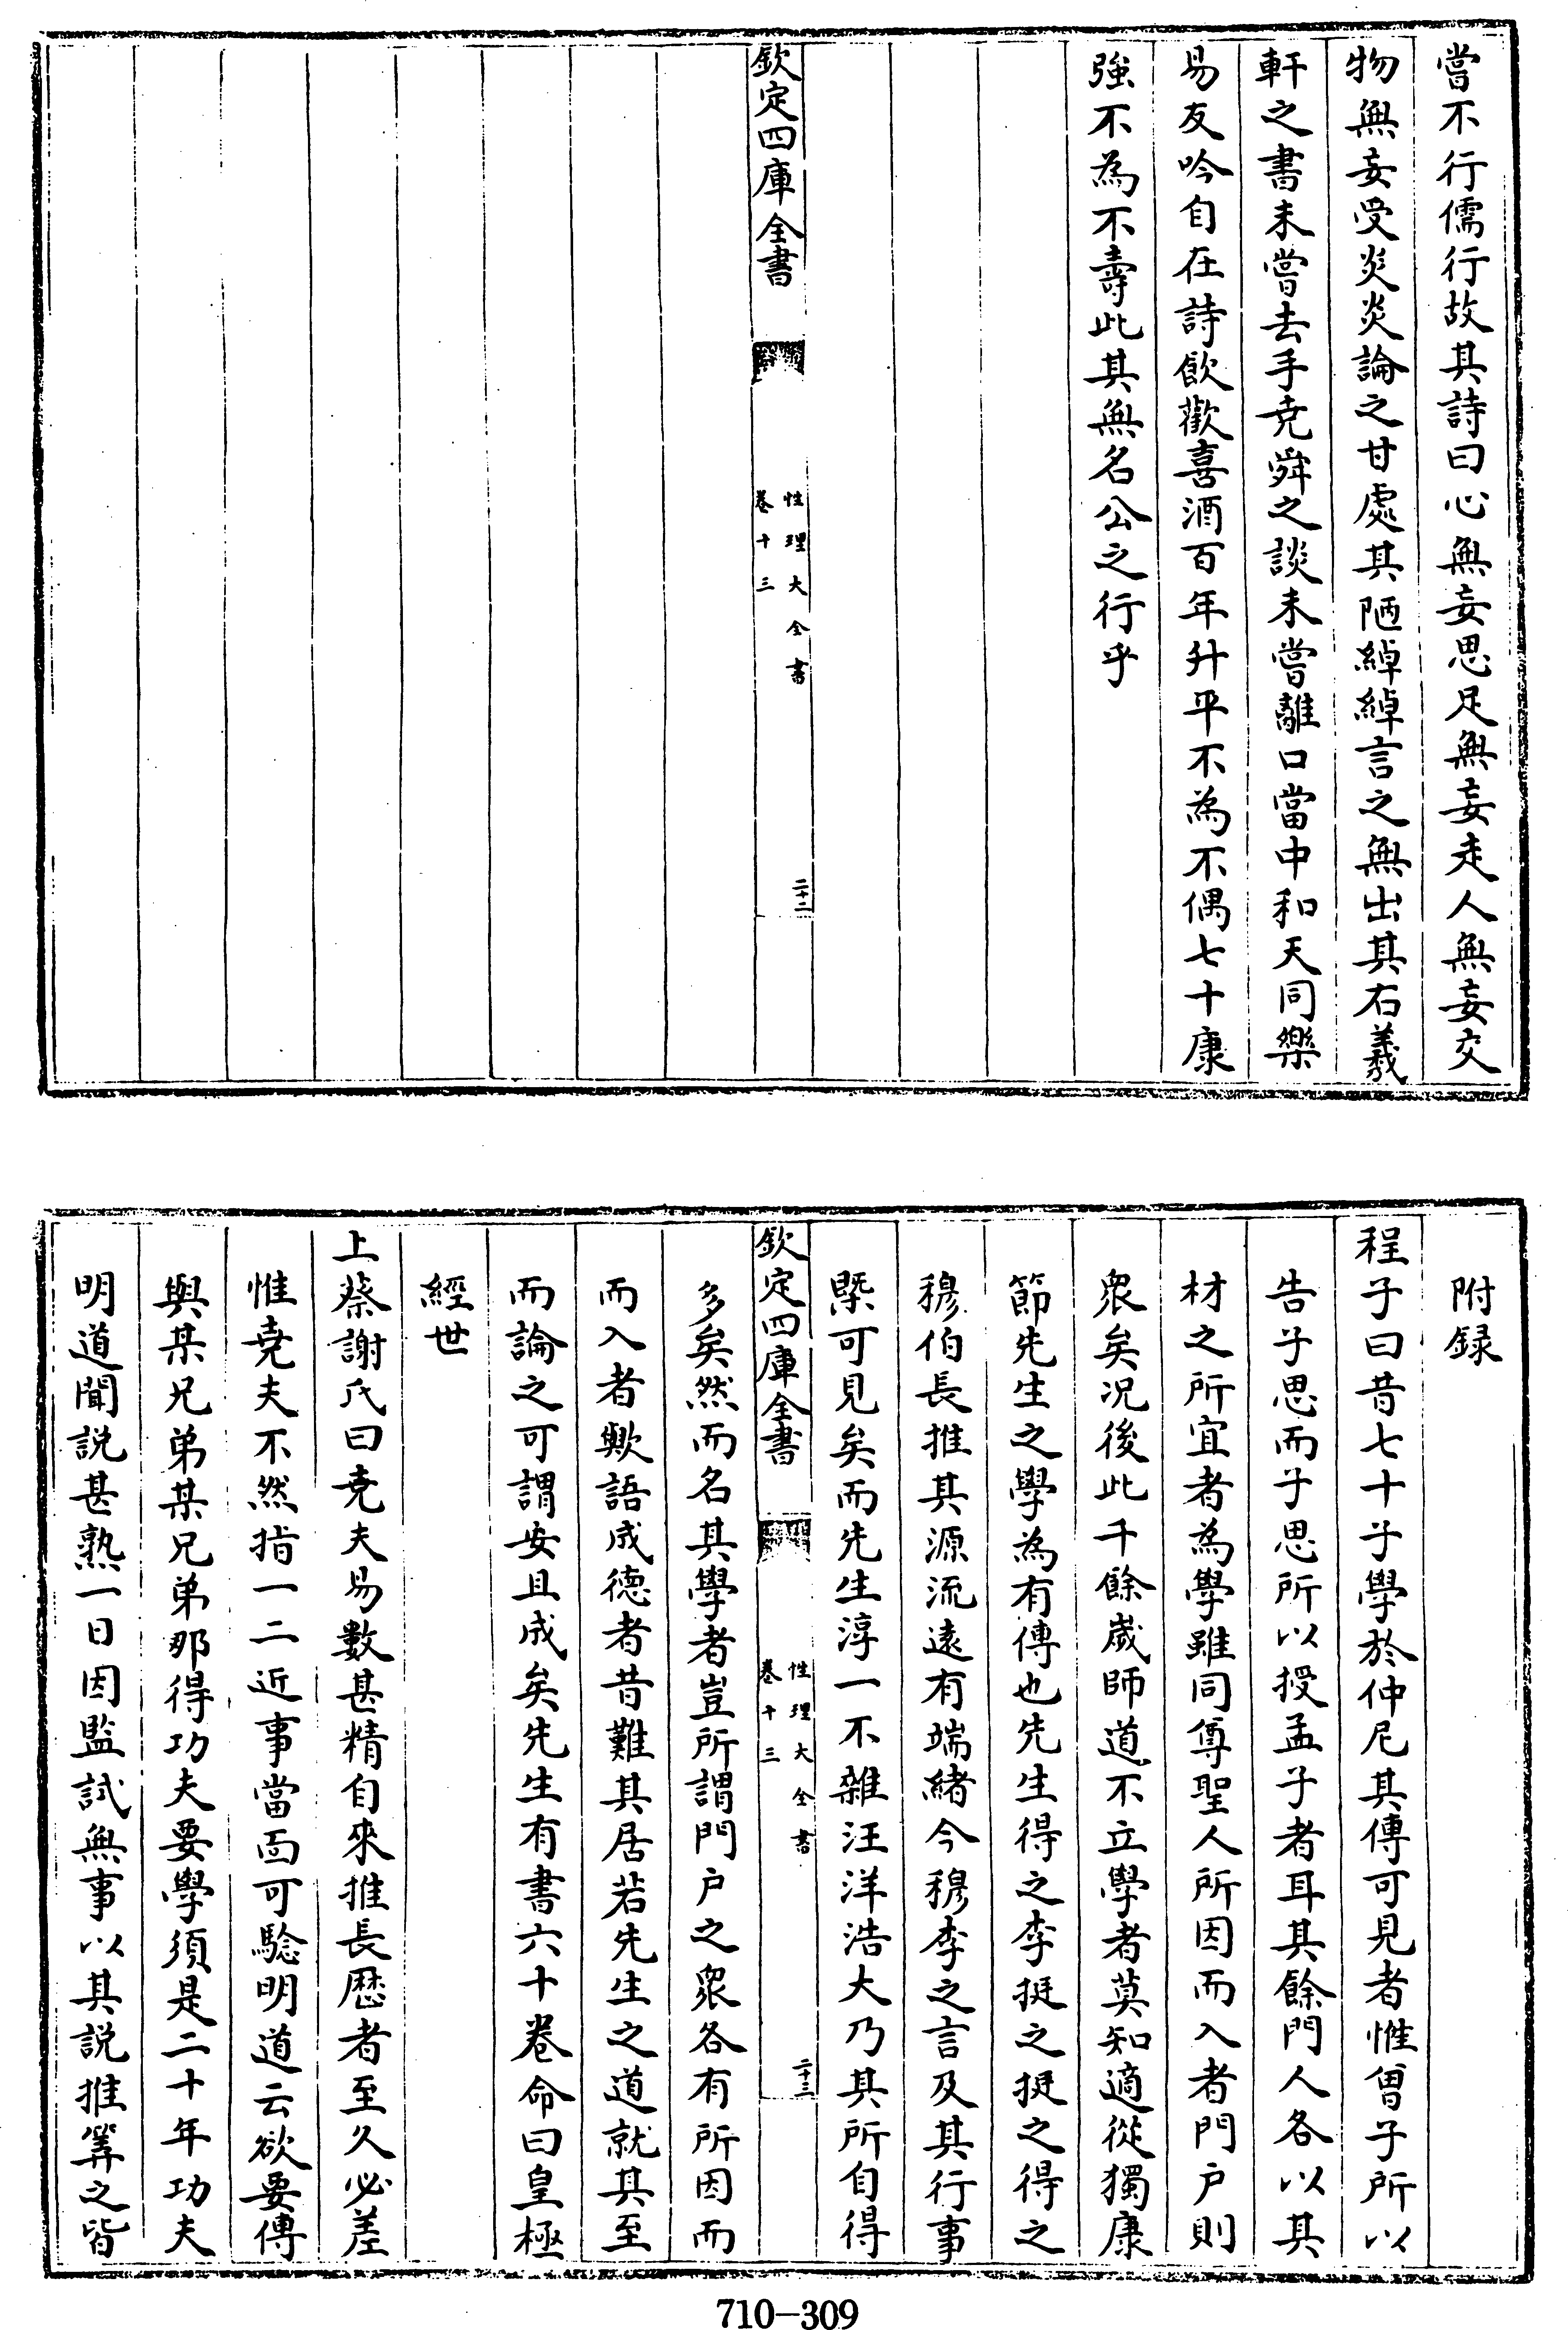 嘗不行儒行故其詩曰心無妄思足無妄走人無妄交
物無妄受炎炎論之甘處其陋綽綽言之無出其右羲
軒之書未嘗去手堯舜之談未嘗離口當中和天同樂
易友吟自在詩飲歡喜酒百年升平不為不偶七十康
強不為不壽此其無名公之行乎
欽定四庫全書
性理大全書
卷十三
二十二
附録
程子曰昔七十子學於仲尼其傳可見者惟曾子所以
告子思而子思所以授孟子者耳其餘門人各以其
材之所宜者為學雖同尊聖人所因而入者門户則
衆矣况後此千餘歲師道不立學者莫知適從獨康
節先生之學為有傳也先生得之李挺之挺之得之
穆伯長推其源流遠有端緒今穆李之言及其行事
槩可見矣而先生淳一不雜汪洋浩大乃其所自得
欽定四庫全書
性理大全書
卷十三
二十三
多矣然而名其學者豈所謂門户之衆各有所因而
而入者歟語成德者昔難其居若先生之道就其至
而論之可謂安且成矣先生有書六十卷命曰皇極
經世
上蔡謝氏曰堯夫易數甚精自來推長厯者至久必差
惟堯夫不然指一二近事當面可驗明道云欲要傳
與某兄弟某兄弟那得功夫要學須是二十年功夫
明道聞説甚熟一日因監試無事以其説推筭之皆
710-309